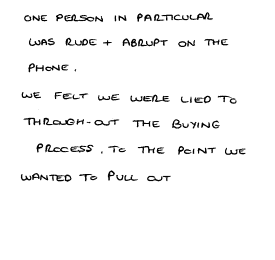 ONE PERSON IN PARTICULAR
WAS RUDE + ABRUPT ON THE
PHONE.
WE FELT WE WERE LIED TO
THROUGH-OUT THE BUYING
PROCESS. TO THE POINT WE
WANTED TO PULL OUT